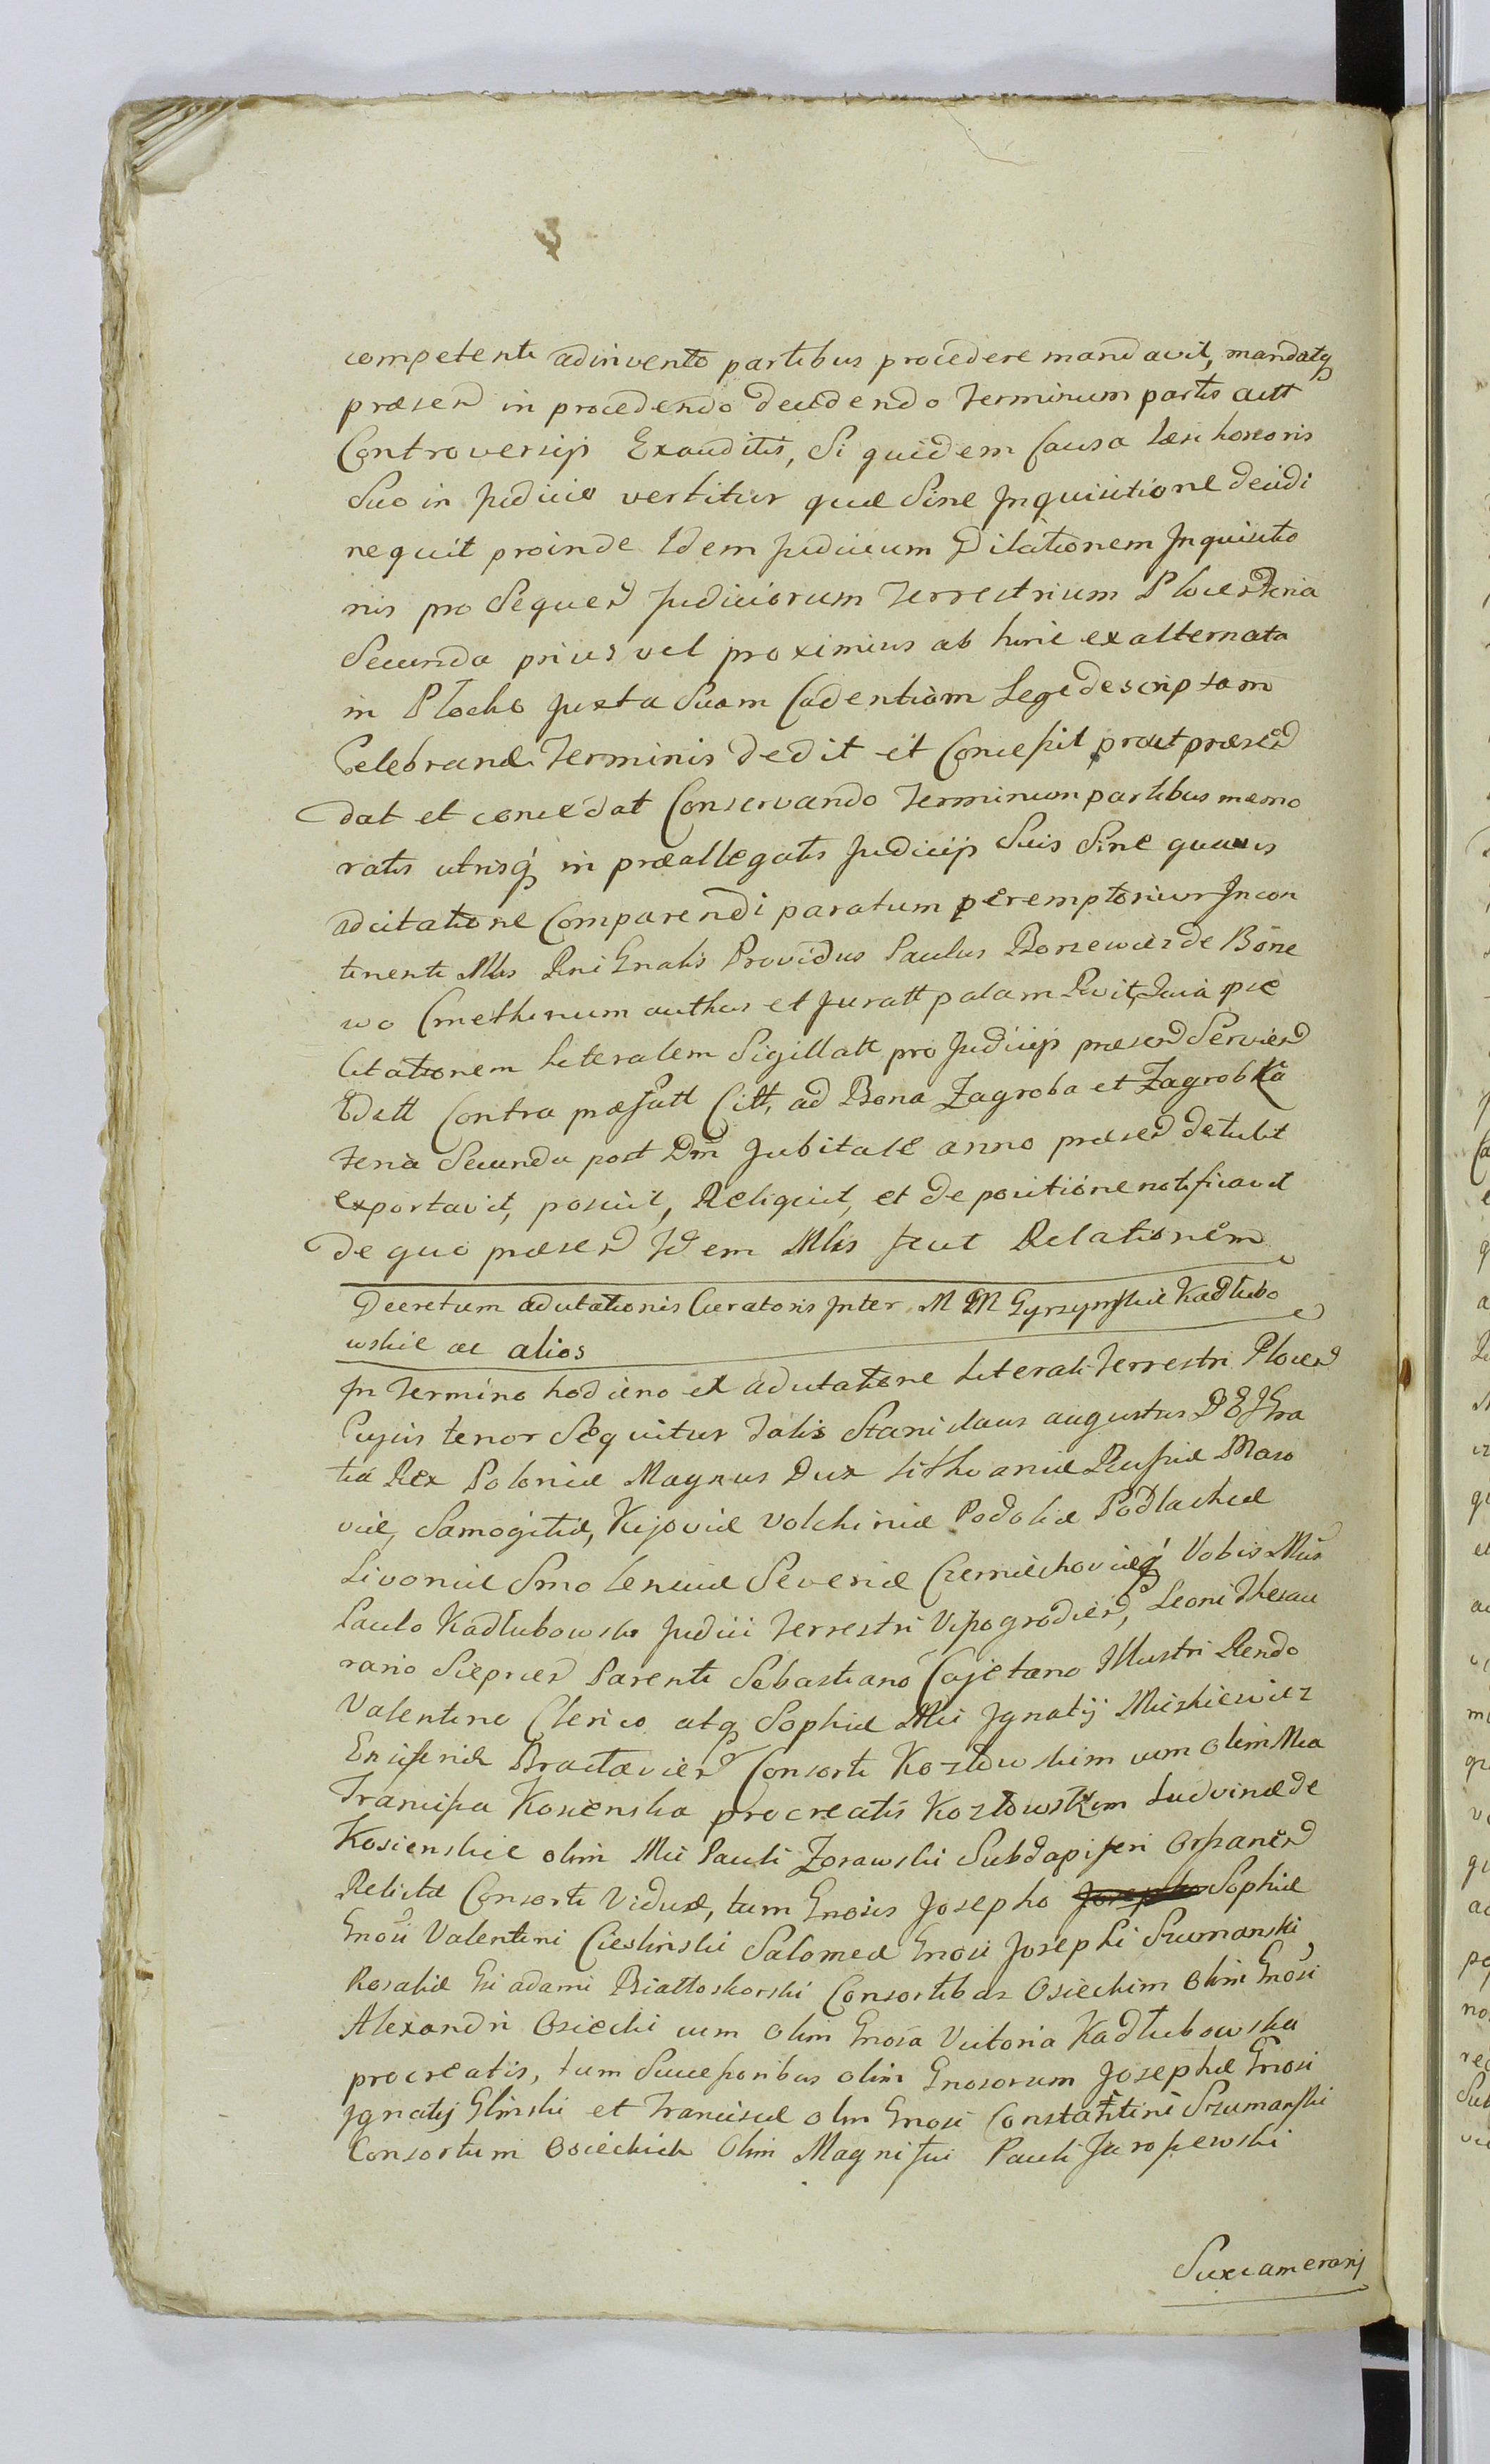 competenti adinvento partibus procedere mandavit, mandatq
præsen in procedendo decidendo Terminum partis actt
Controversijs Exauditis, Si quidem Causa læsi honoris
Suo in Judicio vertitur quæ Sine Inquisitione decidi
nequit proinde Idem Judicium Dilationem Inquisitio
nis pro Sequen Judiciorum Terrestrium Plocen Feria
Secunda prius vel proximius ab hinc ex alternata
in Plocko Juxta Suam Cadentiam Lege descriptam
Celebrand Terminis dedit et Concessit prout præsen
dat et concedat Conservando Terminum partibus memo
ratis utrisq in præallegatis Judicijs Suis Sine quavis
adcitatione Comparendi paratum peremptorium Incon
tinenti Mlis Rni Gnalis Providus Paulus Borzewicz de Bone
wo Cmethonum authus et Juratt palam Rvit Quia ipse
Citationem Literalem Sigillatt pro Judicijs præsen Servien
Edatt Contra præfatt Citt, ad Bona Zagroba et Zagrobka
Feria Secunda post Dm Jubilate anno præsen detulit
exportavit, posuit, Reliquit, et de positione notificavit
de quo præsen Idem Mlis fecit Relationem
Decretum adcitationis Curatoris Inter M M Gyrzynskie Kadłubo
wskie ac alios
In Termino hodierno ex adcitatione Literali Terrestri Plocen
Cujus tenor Sequitur Talis Stanislaus augustus D E J Gra
tia Rex Poloniæ Magnus Dux Lithvaniæ Russiæ Maso
viæ, Samogitiæ, Kijoviæ Volchiniæ Podoliæ Podlachiæ
Livoniæ Smolensciæ Severiæ Czerniechoviæq Vobis Mcis
Paulo Kadłubowski Judici Terrestri Vissogrodien, Leoni Thesau
rario Sieprien Parenti Sebastiano Cajetano Illustri Rendo
Valentino Clerico atq Sophiæ Mci Ignatij Mieszkiewicz
Ensiferidæ Bractavien Consorti Kozłowskim cum olim Mca
Francisca Kosienska procreatis Kozłowskim Ludvinæ de
Kosienskie olim Mci Pauli Zorawski Subdapiferi Orszanen
Relictæ Consorti Viduæ, tum Gnosis Josepho Sophiæ
Gnosi Valentini Cieslinski Salomeæ Gnosi Josephi Szumanski
Rosaliæ Gsi adami Białłoskorski Consortibus Osieckim Olim Gnosi
Alexandri Osiecki cum olim Gnosa Victoria Kadłubowska
procreatis, tum Successoribus olim Gnosorum Josephæ Gnosi
Ignatij Glinski et Franciscæ olim Gnosi Constantini Szumanski
Consortum Osieckich Olim Magnifici Pauli Jaroszewski
Succamerarij